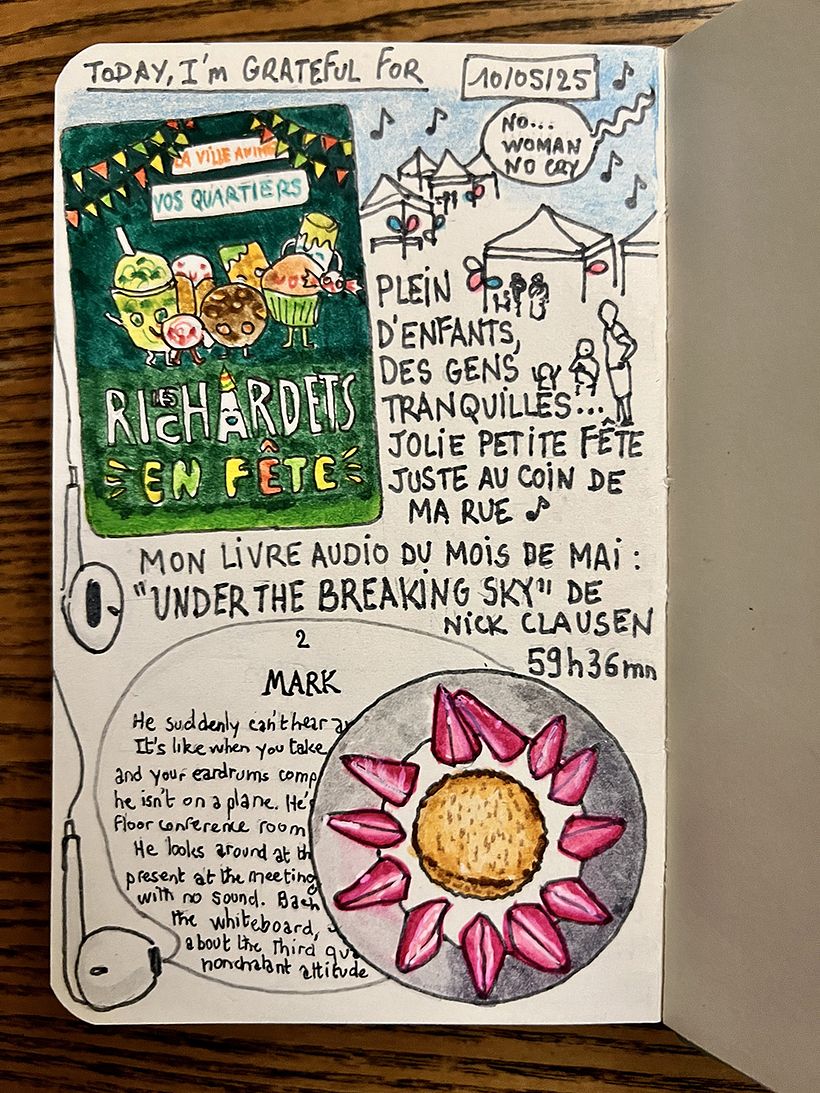 TODAY, I'm GRATEFUL FOR
10/05/25
NO...
WOMAN
NO CRY
LA VILLE ANIME
VOS QUARTIERS
LES
RICHARDETS
EN FÊTE
PLEIN
D'ENFANTS,
DES GENS
TRANQUILLES...
JOLIE PETITE FÊTE
JUSTE AU COIN DE
MA RUE ♪
MON LIVRE AUDIO DU MOIS DE MAI :
"UNDER THE BREAKING SKY" DE
NICK CLAUSEN
59h36mn
2
MARK
He suddenly can't hear
It's like when you take
and your eardrums comp
he isn't on a plane. He's
Floor conference room
He looks around at th
present at the meeting
with no sound.
the whiteboard,
about the third qua
nonchalant attitude